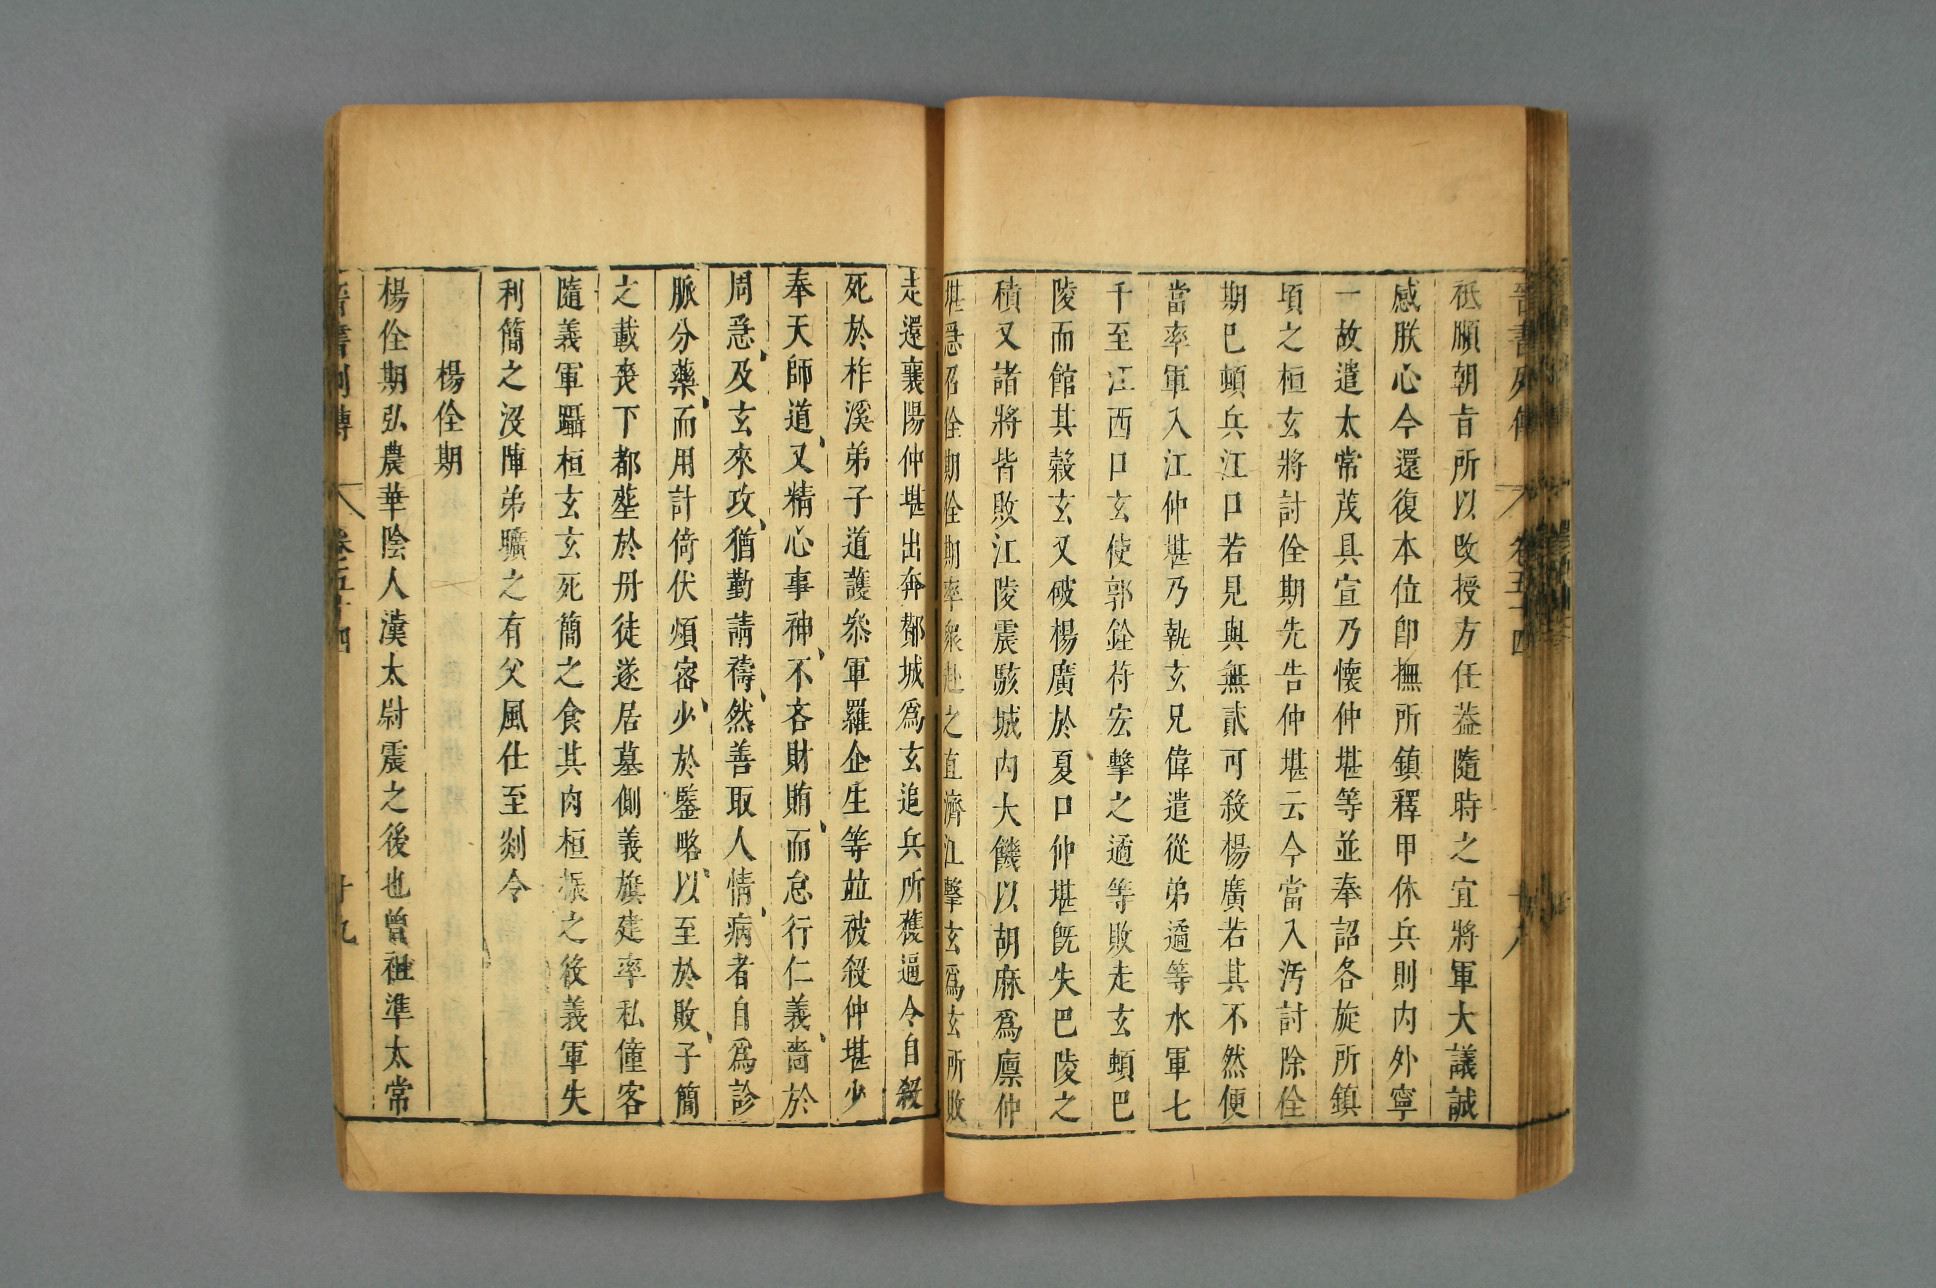 晉書列傳 卷五十四 十八
祗順朝旨所以改授方任葢隨時之宜將軍大議誠
感朕心今還復本位卽撫所鎮釋甲休兵則內外寧
一故遣太常茂具宣乃懷仲堪等並奉詔各旋所鎮
頃之桓玄將討佺期先告仲堪云今當入沔討除佺
期已頓兵江口若見與無貳可殺楊廣若其不然便
當率軍入江仲堪乃執玄兄偉遣從弟遹等水軍七
千至江西口玄使郭銓苻宏擊之遹等敗走玄頓巴
陵而館其穀玄又破楊廣於夏口仲堪旣失巴陵之
積又諸將皆敗江陵震駭城內大饑以胡麻爲廩仲
堪急召佺期佺期率衆赴之直濟江擊玄爲玄所敗
走還襄陽仲堪出奔酇城爲玄追兵所獲逼令自殺
死於柞溪弟子道護叅軍羅企生等並被殺仲堪少
奉天師道又精心事神不吝財賄而怠行仁義嗇於
周急及玄來攻猶勤請禱然善取人情病者自爲診
脈分藥而用計倚伏煩密少於鑒略以至於敗子簡
之載喪下都塟於丹徒遂居墓側義旗建率私僮客
隨義軍躡桓玄玄死簡之食其肉桓振之役義軍失
利簡之沒陣弟曠之有父風仕至剡令
楊佺期
楊佺期弘農華陰人漢太尉震之後也曾祖準太常
晉書列傳 卷之五十四 十九